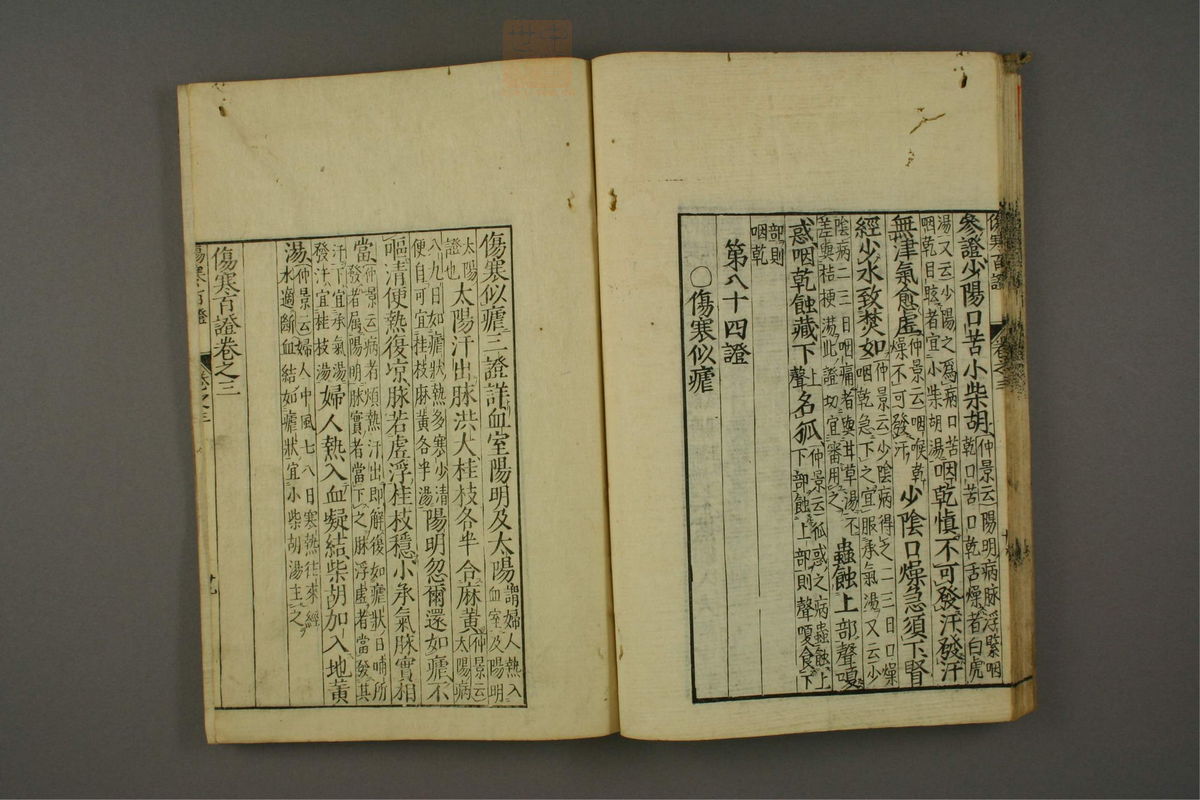 傷寒百證
卷之三
參證少陽口苦小柴胡仲景云陽明病脉浮緊咽乾口苦口乾舌燥者白虎
湯又云少陽之爲病口苦咽乾目眩者宜小柴胡湯咽乾愼不可發汗發汗
無津氣愈虛仲景云咽喉乾燥不可發汗少陰口燥急須下腎
經少水致焚如仲景云少陰病得之二三日口燥咽乾急下之宜服承氣湯又云少
陰病二三日咽痛者與甘草湯不差與桔梗湯此證切宜審用之蟲蝕上部聲嗄
惑咽乾蝕藏下聲名狐仲景云狐惑之病蟲蝕上下部蝕上部則聲嗄食下
部則咽乾
第八十四證
〇傷寒似瘧
傷寒似瘧三證詳血室陽明及太陽謂婦人熱入血室及陽明
太陽證也太陽汗出脉洪大桂枝各半合麻黃仲景云太陽病
八九日如瘧狀熱多寒少清便自可宜桂枝麻黃各半湯陽明忽爾還如瘧不
嘔清便熱復凉脉若虛浮桂枝穩小承氣脉實相
當仲景云病者煩熱汗出即解復如瘧狀日晡所發者屬陽明脉實者當下之脉浮虛者當發其
汗下宜承氣湯發汗宜桂枝湯婦人熱入血凝結柴胡加入地黃
湯仲景云婦人中風七八日寒熱往來經水適斷血結如瘧狀宜小柴胡湯主之
傷寒百證卷之三
傷寒百證
卷之三